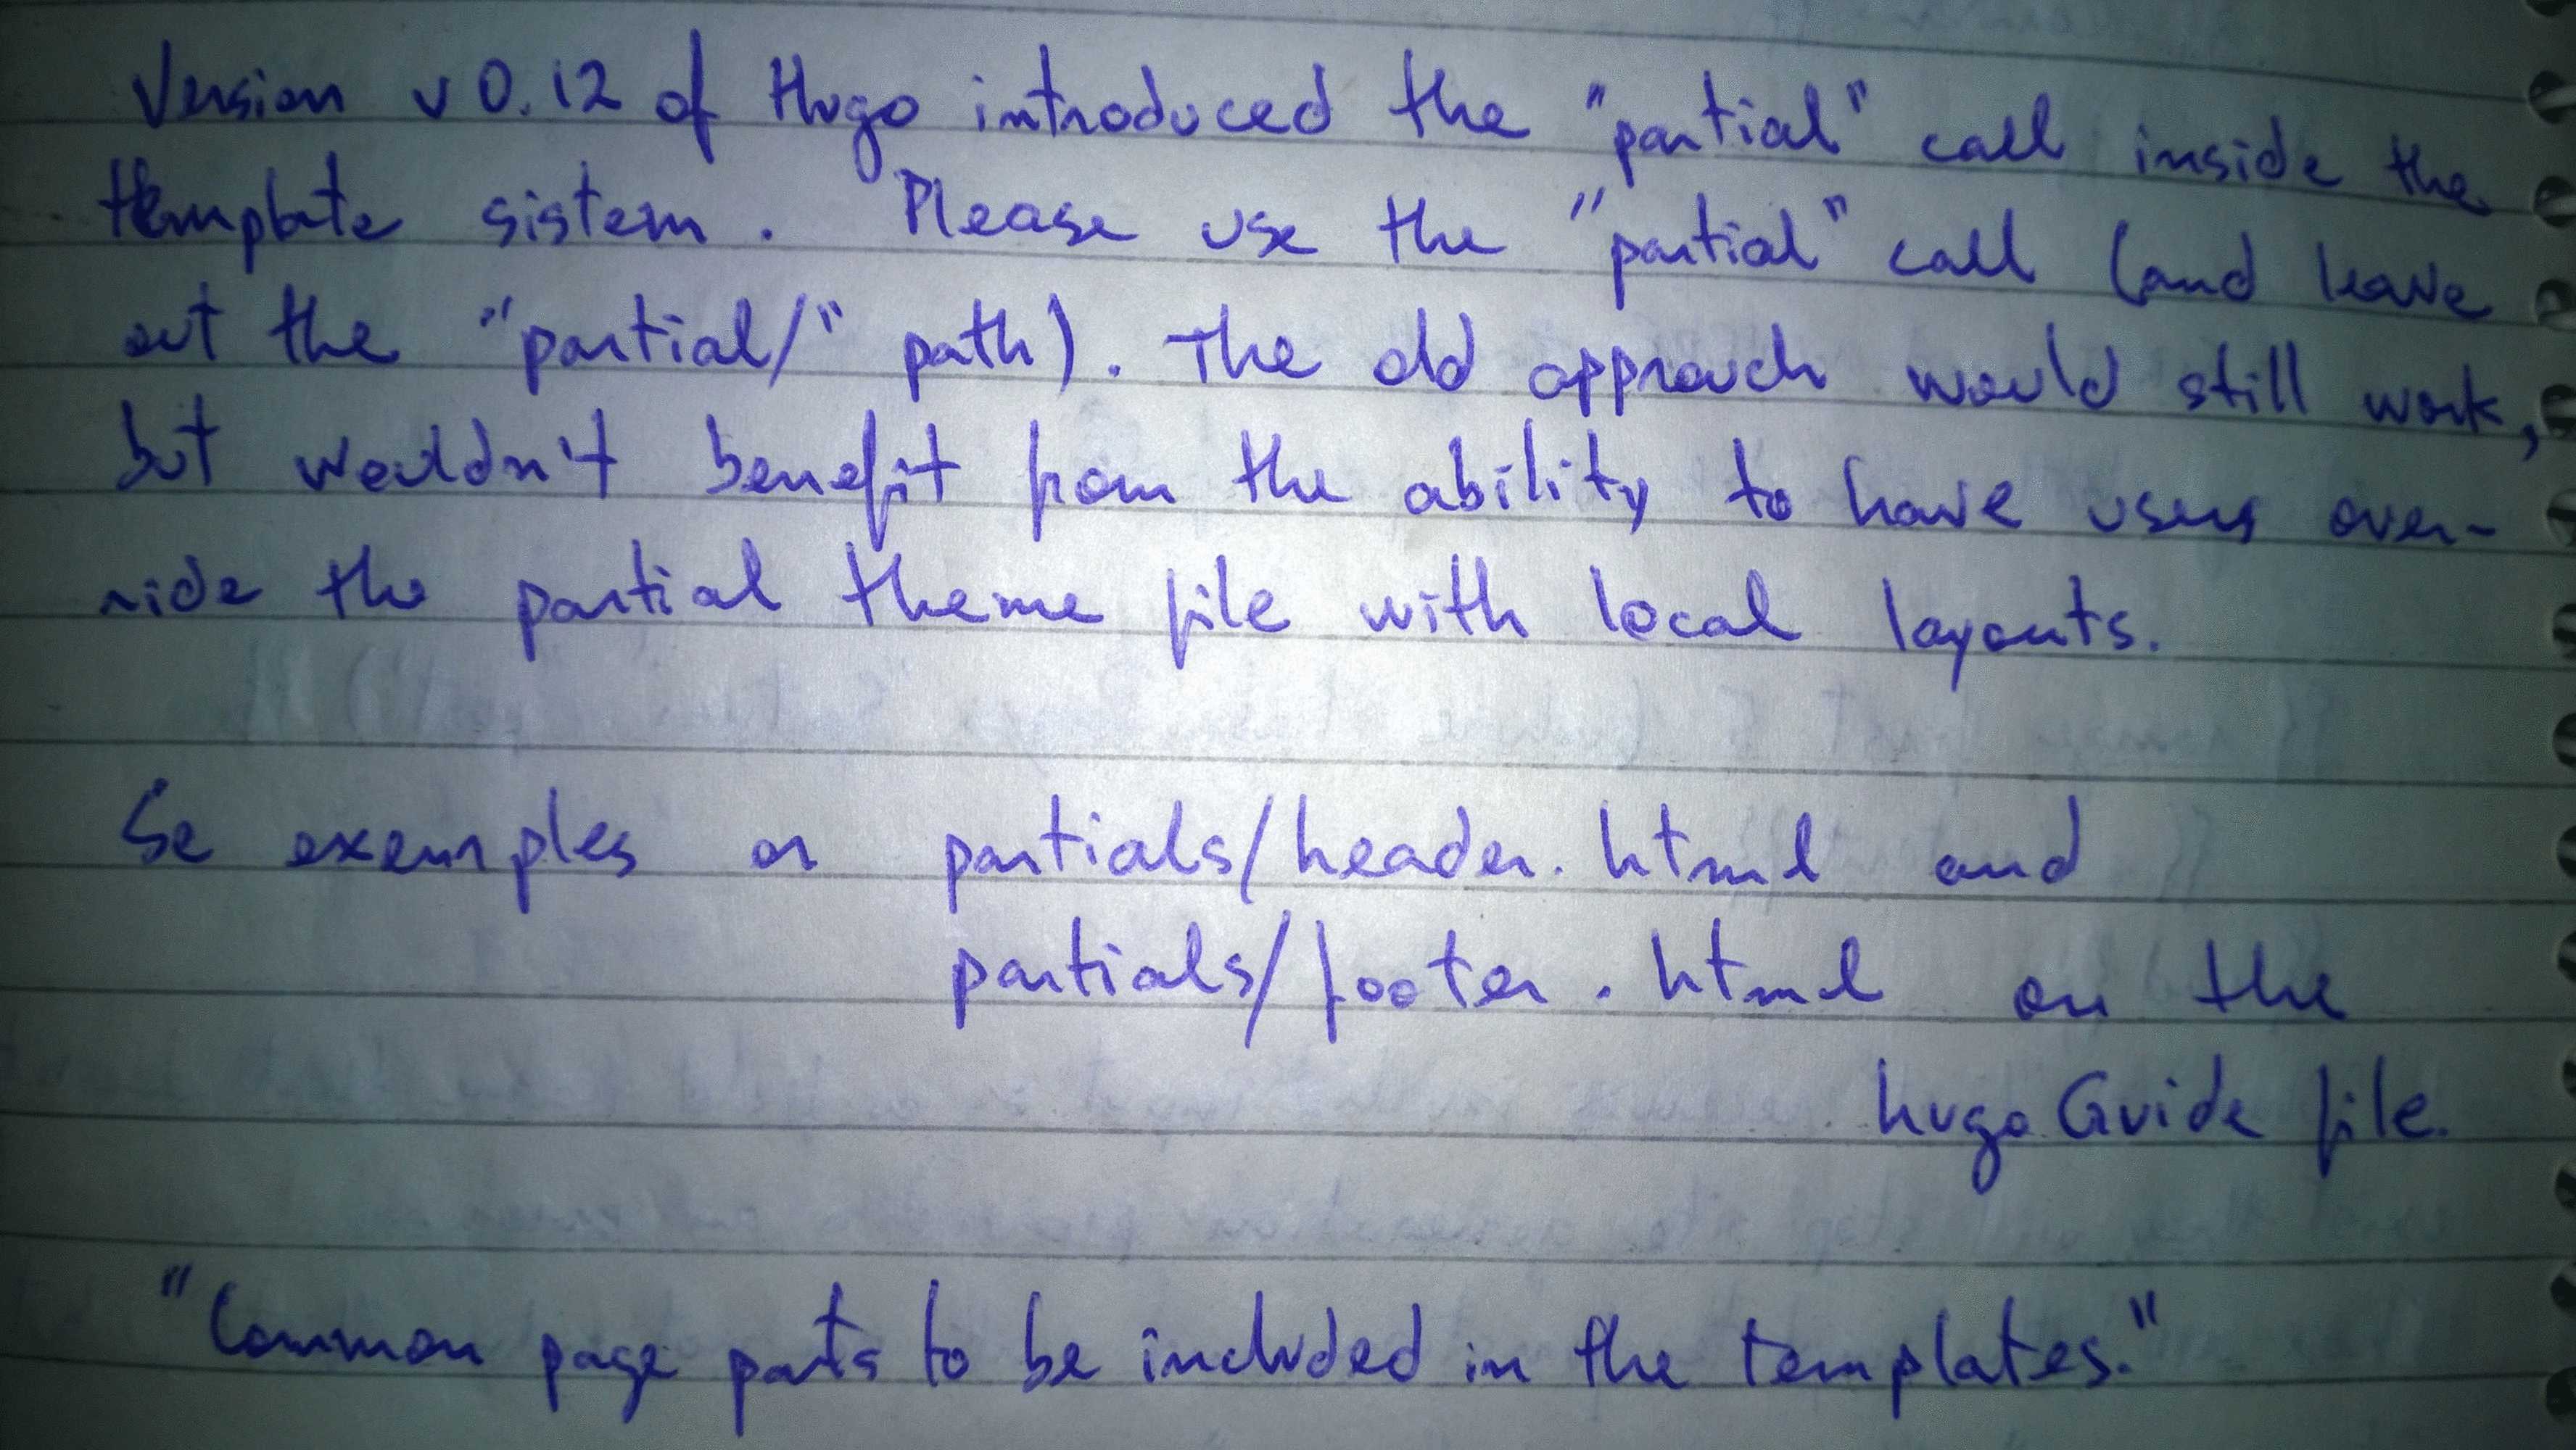 Version v0.12 of Hugo introduced the "partial" call inside the
template sistem. Please use the "partial" call (and leave
out the "partial/" path). The old approach would still work,
but wouldn't benefit from the ability to have users over-
ride the partial theme file with local layouts.
Se exemples on partials/header.html and
partials/footer.html on the
hugo Guide file.
"Common page parts to be included in the templates."